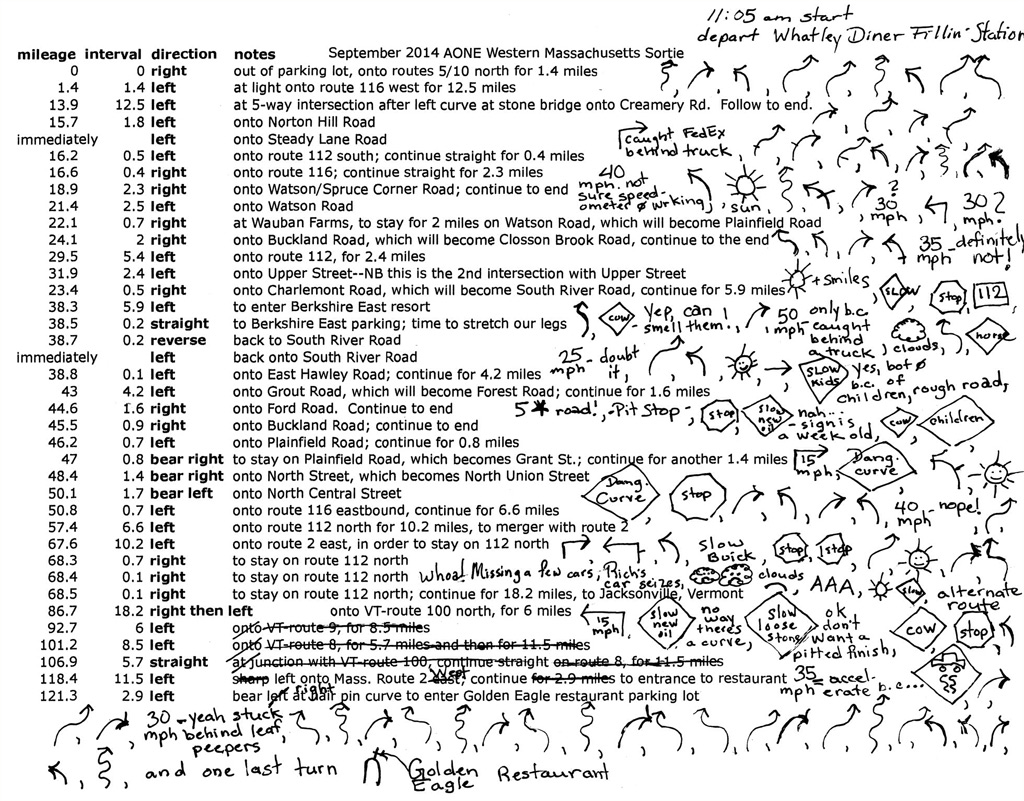 11:05 am start
depart Whatley Diner Fillin' Station
mileage interval direction notes September 2014 AONE Western Massachusetts Sortie
0 0 right out of parking lot, onto routes 5/10 north for 1.4 miles
1.4 1.4 left at light onto route 116 west for 12.5 miles
13.9 12.5 left at 5-way intersection after left curve at stone bridge onto Creamery Rd. Follow to end.
15.7 1.8 left onto Norton Hill Road
immediately left onto Steady Lane Road
caught FedEx
behind truck,
16.2 0.5 left onto route 112 south; continue straight for 0.4 miles
16.6 0.4 right onto route 116; continue straight for 2.3 miles
18.9 2.3 right onto Watson/Spruce Corner Road; continue to end
40
mph. not
sure speed-
ometer ø wrking,
sun,
?
30
mph
30?
mph.
21.4 2.5 left onto Watson Road
22.1 0.7 right at Wauban Farms, to stay for 2 miles on Watson Road, which will become Plainfield Road
24.1 2 right onto Buckland Road, which will become Closson Brook Road, continue to the end
35 - definitely
mph not!
29.5 5.4 left onto route 112, for 2.4 miles
31.9 2.4 left onto Upper Street--NB this is the 2nd intersection with Upper Street
23.4 0.5 right onto Charlemont Road, which will become South River Road, continue for 5.9 miles
+ smiles,
SLOW
Stop
112
38.3 5.9 left to enter Berkshire East resort
38.5 0.2 straight to Berkshire East parking; time to stretch our legs
cow
Yep, can I
smell them.,
50 only b.c.
mph caught
behind
a truck,
clouds,
horse
38.7 0.2 reverse back to South River Road
immediately left back onto South River Road
25 - doubt
mph it,
38.8 0.1 left onto East Hawley Road; continue for 4.2 miles
SLOW
kids
yes, bot ø
b.c. of
children,
rough road,
43 4.2 left onto Grout Road, which will become Forest Road; continue for 1.6 miles
44.6 1.6 right onto Ford Road. Continue to end
5* road!, -Pit Stop-,
stop
slow
new
oil
nah...
- sign is
a week old,
cow
children
45.5 0.9 right onto Buckland Road; continue to end
46.2 0.7 left onto Plainfield Road; continue for 0.8 miles
47 0.8 bear right to stay on Plainfield Road, which becomes Grant St.; continue for another 1.4 miles
15
mph,
Dang.
curve
48.4 1.4 bear right onto North Street, which becomes North Union Street
Dang.
Curve
stop
50.1 1.7 bear left onto North Central Street
50.8 0.7 left onto route 116 eastbound, continue for 6.6 miles
40 - nope!
mph
57.4 6.6 left onto route 112 north for 10.2 miles, to merger with route 2
67.6 10.2 left onto route 2 east, in order to stay on 112 north
slow
Buick,
stop
stop
68.3 0.7 right to stay on route 112 north
68.4 0.1 right to stay on route 112 north
Whoa! Missing a few cars, Rich's
car seizes,
clouds, AAA,
slow
alternate
route
68.5 0.1 right to stay on route 112 north; continue for 18.2 miles, to Jacksonville, Vermont
86.7 18.2 right then left onto VT-route 100 north, for 6 miles
15
mph
slow
new
oil
no
way
there's
a curve,
slow
loose
stone
ok
don't
want a
pitted finish,
cow
stop
92.7 6 left onto VT-route 9, for 8.5 miles
101.2 8.5 left onto VT-route 8, for 5.7 miles and then for 11.5 miles
106.9 5.7 straight at junction with VT-route 100, continue straight on route 8, for 11.5 miles
118.4 11.5 left sharp left onto Mass. Route 2 east, West continue for 2.9 miles to entrance to restaurant
35 = accel-
mph erate b.c...
121.3 2.9 left bear left right at hair pin curve to enter Golden Eagle restaurant parking lot
30 - yeah stuck
mph behind leaf
peepers
and one last turn
Golden
Eagle Restaurant